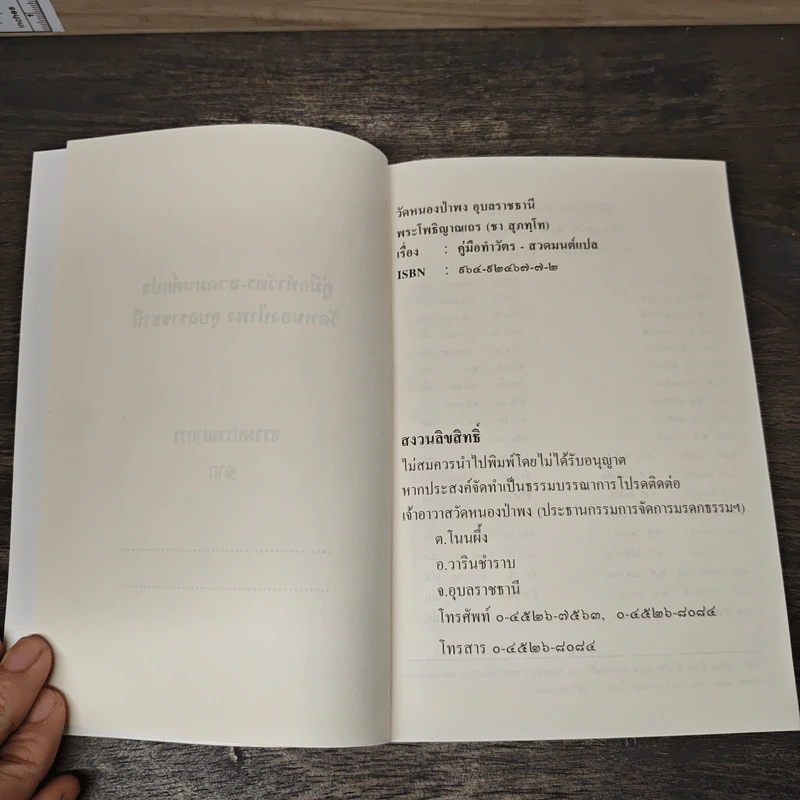 inches
วัดหนองป่าพง อุบลราชธานี
พระโพธิญาณเถร (ชา สุภทฺโท)
เรื่อง : คู่มือทำวัตร - สวดมนต์แปล
ISBN : ๙๖๔-๙๒๔๖๗-๗-๒
สงวนลิขสิทธิ์
ไม่สมควรนำไปพิมพ์โดยไม่ได้รับอนุญาต
หากประสงค์จัดทำเป็นธรรมบรรณาการโปรดติดต่อ
เจ้าอาวาสวัดหนองป่าพง (ประธานกรรมการจัดการมรดกธรรมฯ)
ต.โนนผึ้ง
อ.วารินชำราบ
จ.อุบลราชธานี
โทรศัพท์ ๐-๔๕๒๖-๗๕๖๓, ๐-๔๕๒๖-๘๐๘๔
โทรสาร ๐-๔๕๒๖-๘๐๘๔